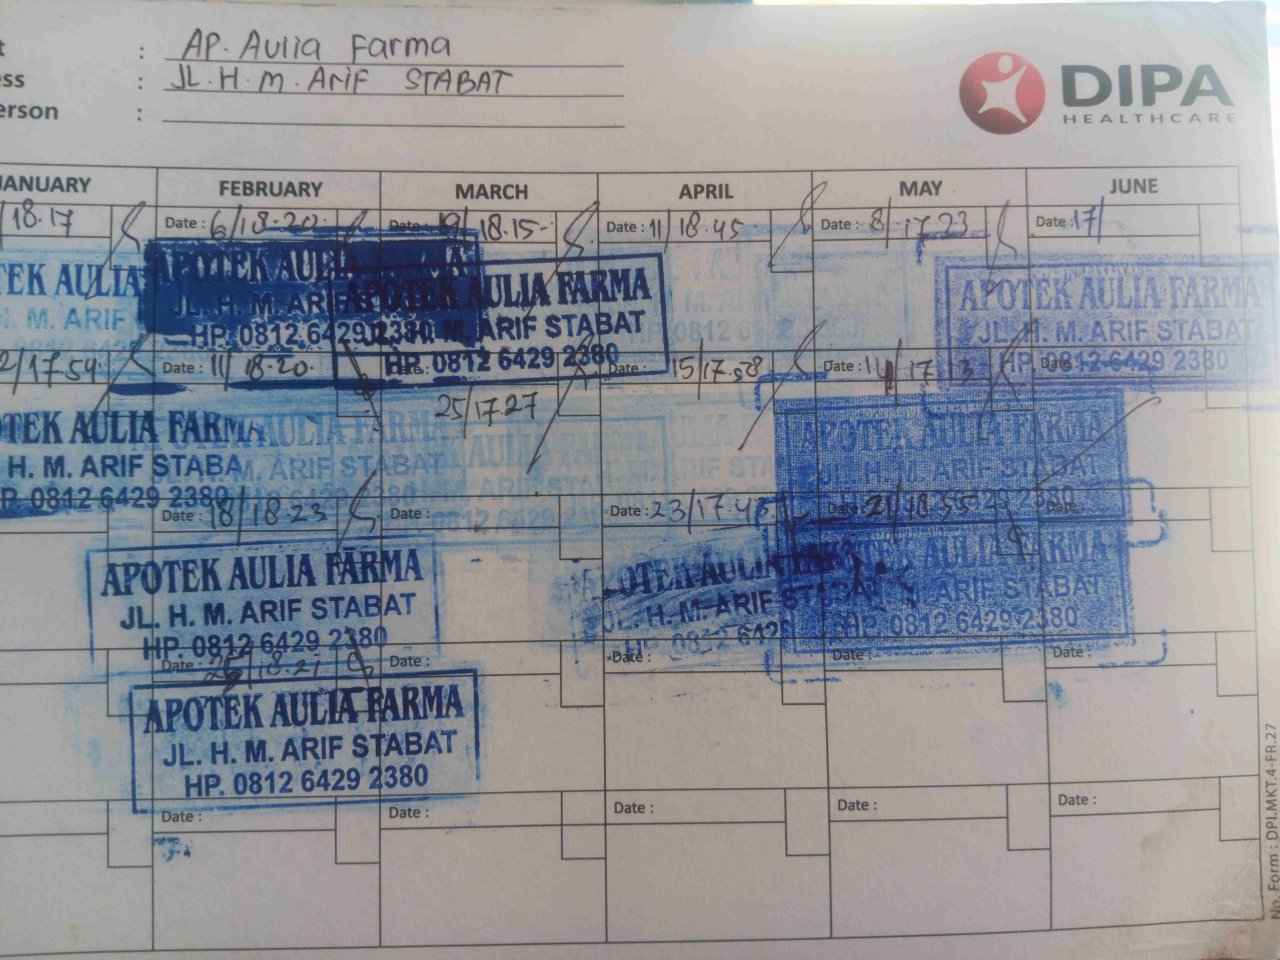 : AP. Aulia Farma
: JL. H. M. Arif STABAT
erson :
DIPA
HEALTHCARE
JANUARY FEBRUARY MARCH APRIL MAY JUNE
18.17 Date : 6/18.20 19/18.15 Date : 11/18.45 Date : 8/17.23 Date : 17/
TEK AULIA
APOTEK AULIA FARMA
JL. H. M. ARIF
HP. 0812 6429 2380
APOTEK AULIA FARMA
M. ARIF STABAT
HP. 0812 6429 2380
APOTEK AULIA FARMA
JL. H. M. ARIF STABAT
HP. 0812 6429 2380
2/17.54 Date : 11/18.20 25/17.27 Date : 15/17.58 Date : 14/17.13 Date :
TEK AULIA FARMA
H. M. ARIF STABA
P. 0812 6429 2380
APOTEK AULIA FARMA
JL. H. M. ARIF STABAT
Date : 18/18.23 Date : Date : 23/17.45 Date : 21/18.55 Date :
APOTEK AULIA FARMA
JL. H. M. ARIF STABAT
HP. 0812 6429 2380
OTEK AULIA
H. M. ARIF STABAT
0812 6429
TEK AULIA FARMA
ARIF STABAT
HP. 0812 6429 2380
Date : 25/18.21 Date : Date : Date : Date :
APOTEK AULIA FARMA
JL. H. M. ARIF STABAT
HP. 0812 6429 2380
Date : Date : Date : Date : Date :
No. Form : DPI.MKT.4-FR.27